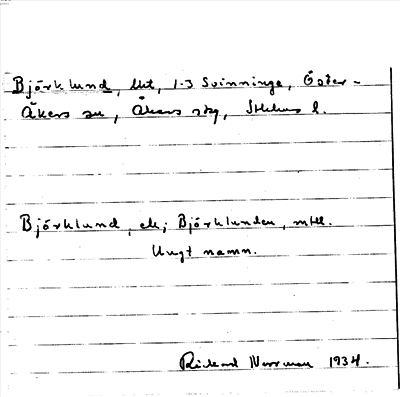 Björklund, lht, 1-3 Svinninge, Öster-
Åkers sn, Åkers skg, Sthlms l.
Björklund, ek; Björklunden, mtl.
Ungt namn.
Rickard Norrman 1934.